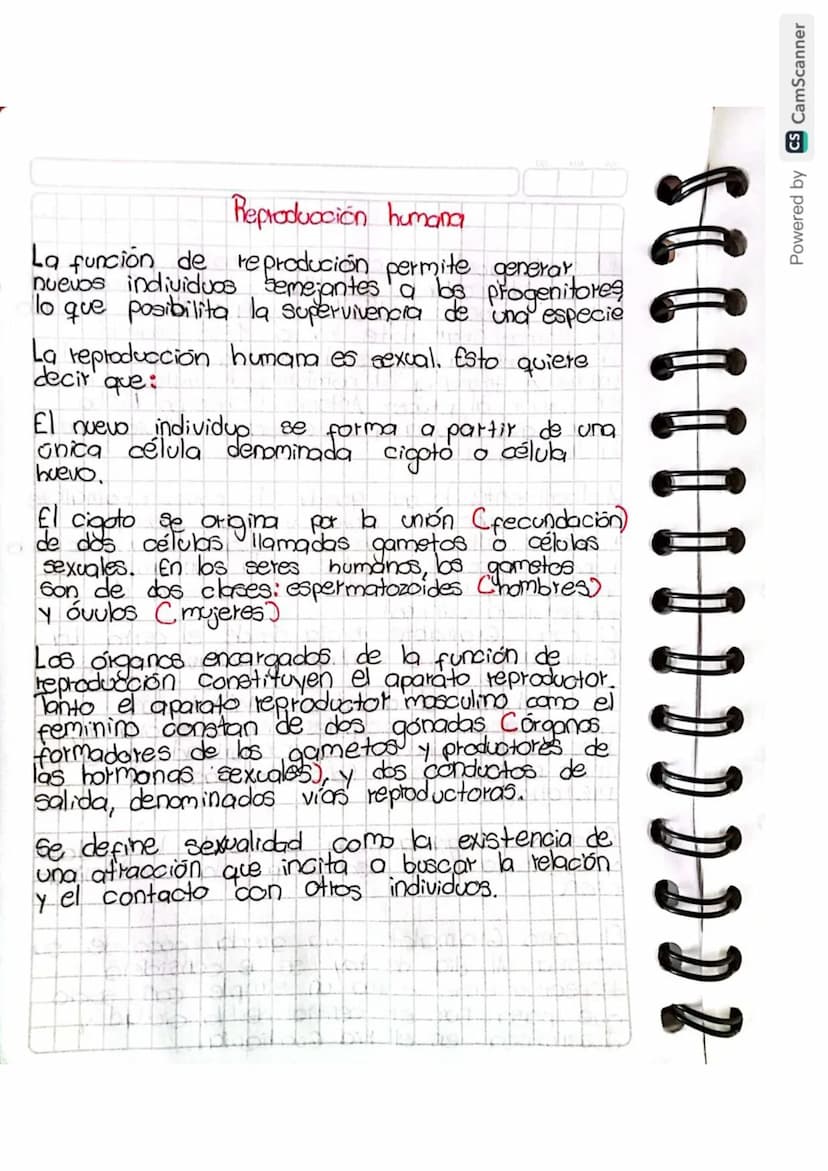 Reproducción humana
La función de reprodución permite generar
nuevos individuos semejantes a los progenitores
lo que posibilita la supervivencia de una especie
La reproducción humana es sexual. Esto quiere
decir que:
El nuevo individuo se forma a partir de una
única célula denominada cigoto o célula
huevo.
El cigoto se origina por la unión (fecundación)
de dos células llamadas gametos o células
sexuales. En los seres humanos, los gametos
son de dos clases: espermatozoides (hombres)
y óvulos (mujeres)
Los órganos encargados de la función de
reproducción constituyen el aparato reproductor.
Tanto el aparato reproductor masculino como el
feminino constan de dos gónadas (órganos
formadores de los gametos y productores de
las hormonas sexuales), y dos conductos de
salida, denominados vías reproductoras.
Se define sexualidad como la existencia de
una atracción que incita a buscar la relación
y el contacto con otros individuos.
Powered by CS CamScanner